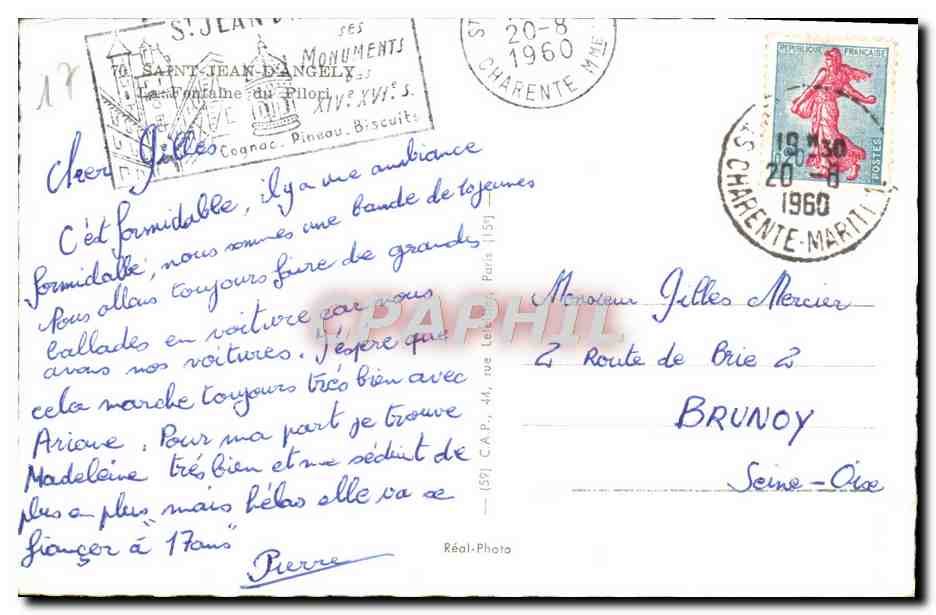 17
ST JEAN D
SES
MONUMENTS
XIVe. XVIe. S.
Cognac. Pineau. Biscuits
70 SAINT-JEAN-D'ANGELY
La Fontaine du Pilori
20-8
1960
CHARENTE Mme
REPUBLIQUE FRANÇAISE
0,20
POSTES
19H30
20 -8
1960
CHARENTE-MARITI
Cher Gilles
C'est formidable, il y a une ambiance
formidable, nous sommes une bande de 10 jeunes
Nous allons toujours faire de grandes
ballades en voiture car nous
avons nos voitures. J'espère que
cela marche toujours très bien avec
Ariane. Pour ma part je trouve
Madeleine très bien et me séduit de
plus en plus, mais hélas elle va se
fiancer à "17 ans"
Pierre
(59) C.A.P., 44, rue Paris (15e)
CPAPHIL
Réal-Photo
Monsieur Gilles Mercier
2 Route de Brie 2
BRUNOY
Seine-Oise